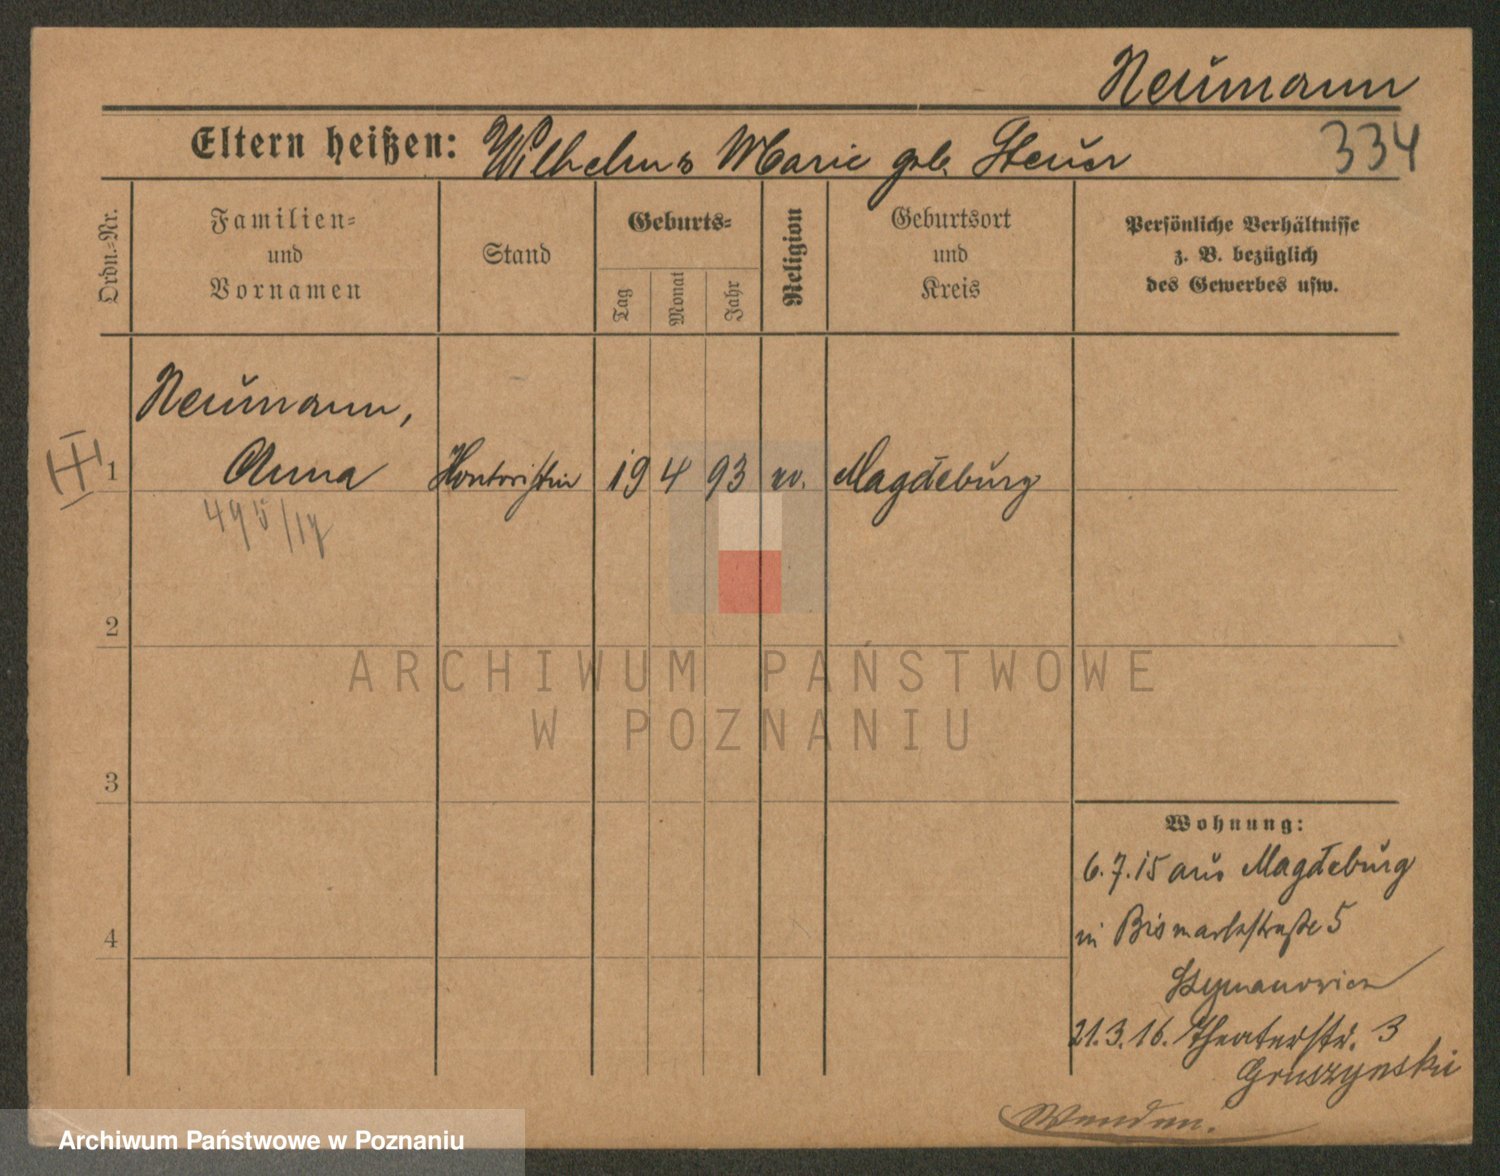 Neumann
Eltern heißen: Wilhelm u Marie geb. Steuer
334
Ordn.-Nr.
Familien-
und
Vornamen
Stand
Geburts-
Tag
Monat
Jahr
Religion
Geburtsort
und
Kreis
Persönliche Verhältnisse
z. B. bezüglich
des Gewerbes usw.
Neumann,
1 Anna Kontoristin 19 4 93 ev. Magdeburg
495/17
2
3
4
ARCHIWUM PAŃSTWOWE
W POZNANIU
Wohnung:
6.7.15 aus Magdeburg
in Bismarkstraße 5
Szymanowicz
21.3.16. Theaterstr. 3
Gruszynski
Wenden.
Archiwum Państwowe w Poznaniu